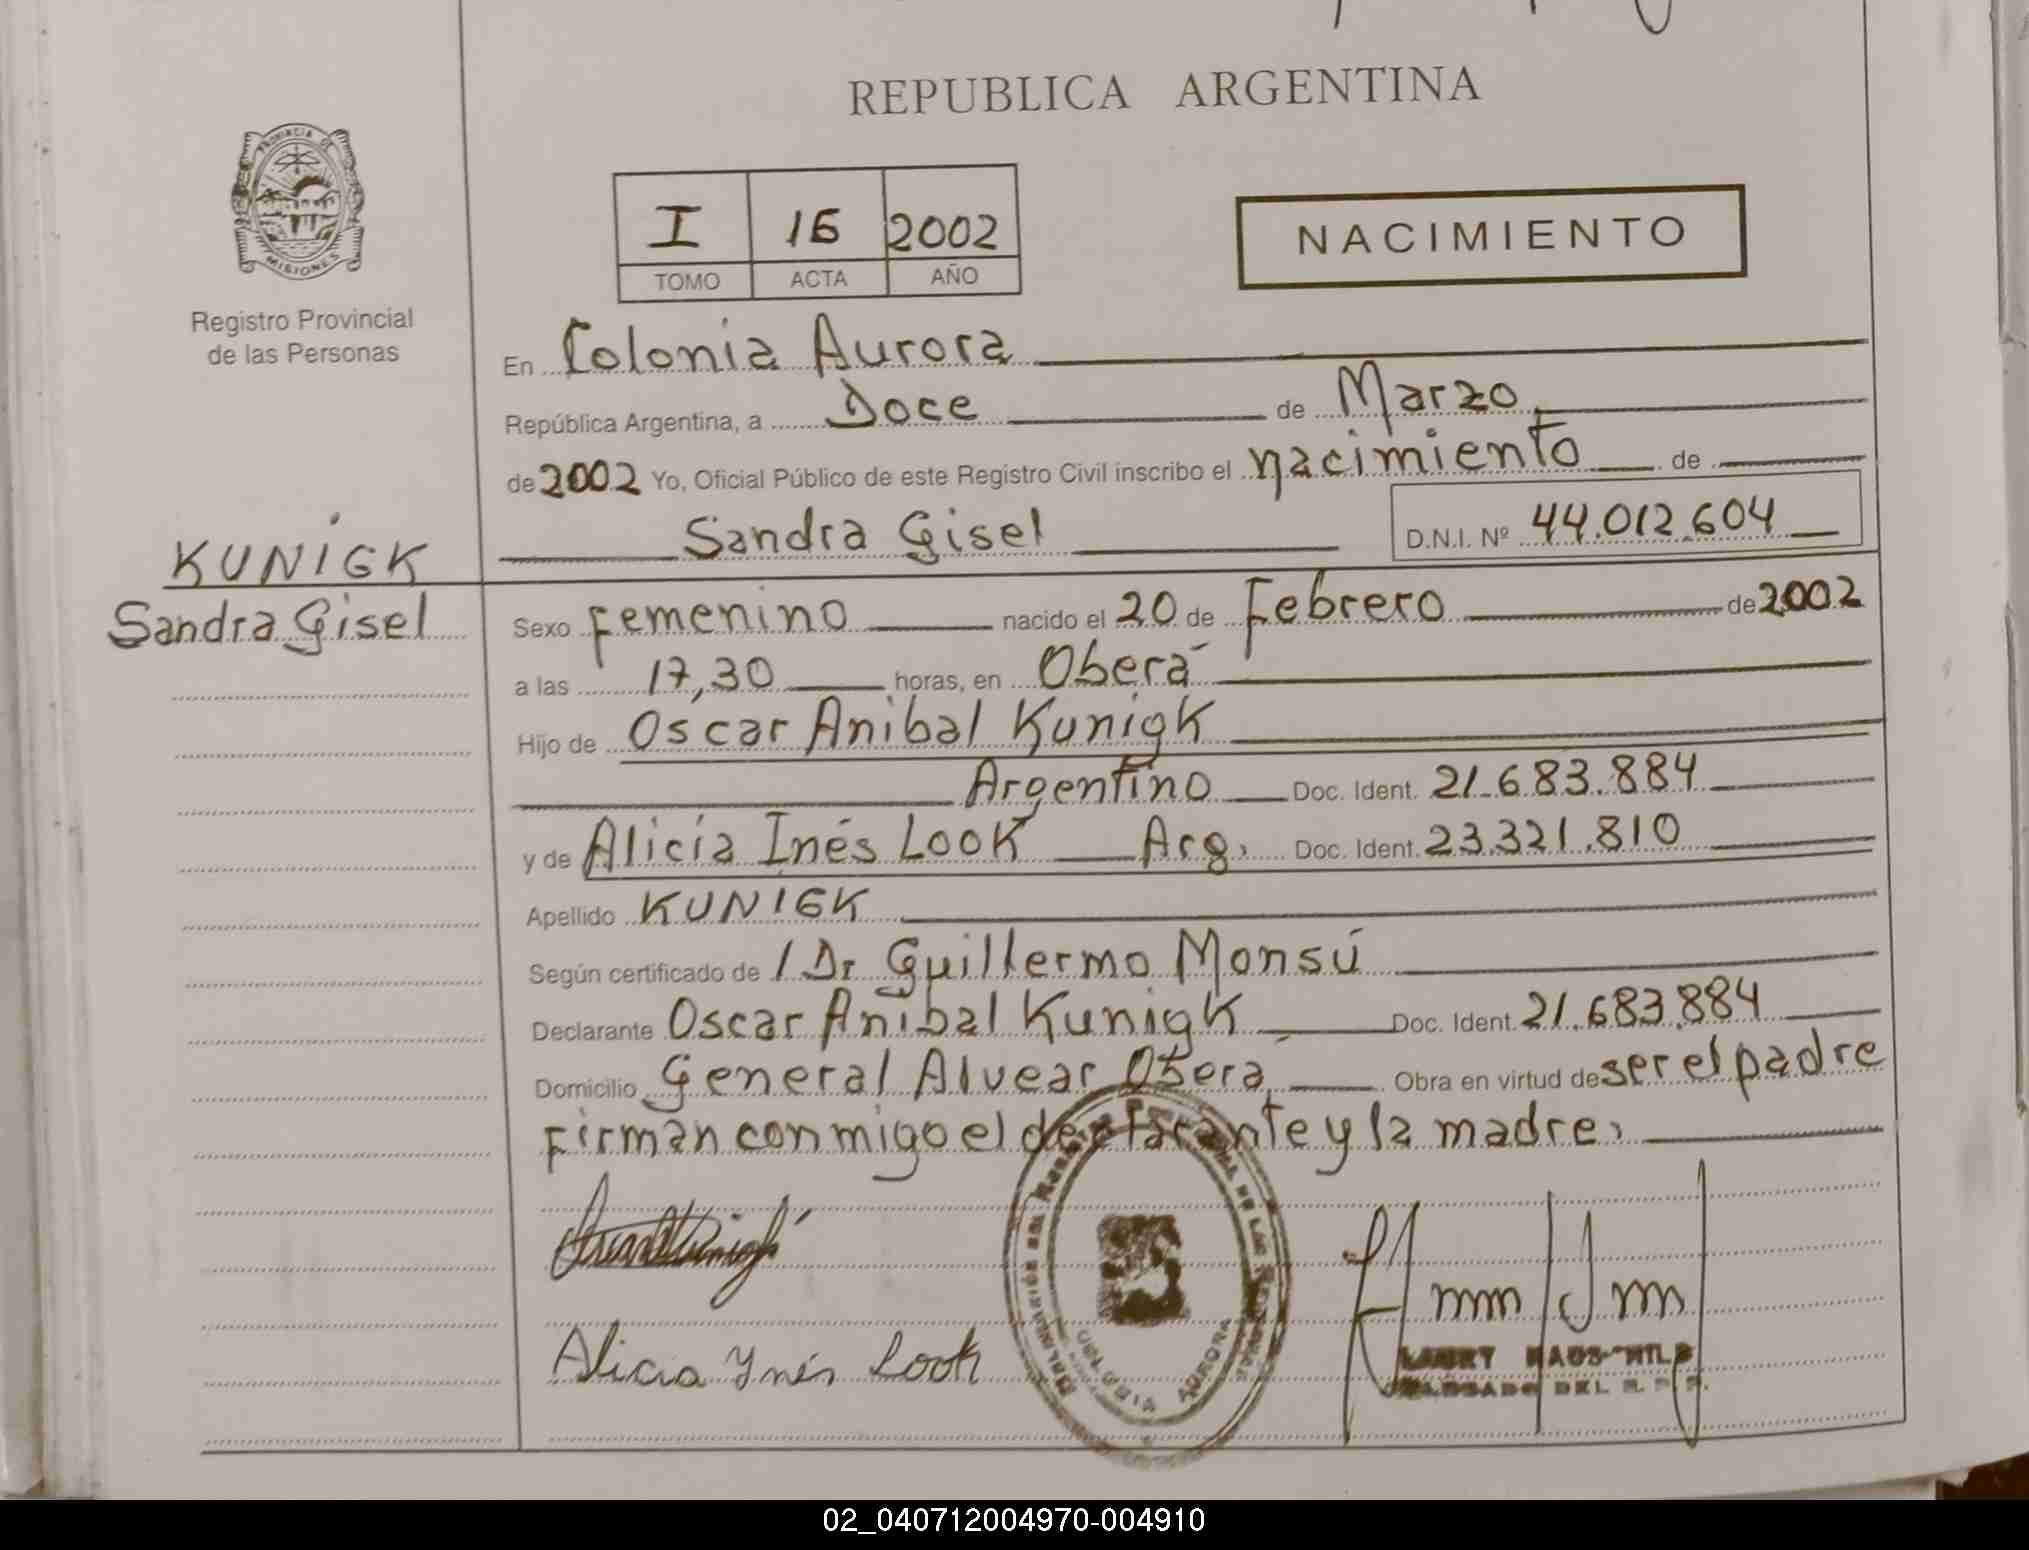 REPUBLICA ARGENTINA
PROVINCIA DE
MISIONES
Registro Provincial
de las Personas
I 16 2002
TOMO ACTA AÑO
NACIMIENTO
En Colonia Aurora
República Argentina, a Doce de Marzo
de 2002 Yo, Oficial Público de este Registro Civil inscribo el nacimiento de
Sandra Gisel D.N.I. Nº 44.012.604
KUNIGK
Sandra Gisel
Sexo Femenino nacido el 20 de Febrero de 2002
a las 17,30 horas, en Oberá
Hijo de Oscar Anibal Kunigk
Argentino Doc. Ident. 21.683.884
y de Alicia Inés Look Arg. Doc. Ident. 23.321.810
Apellido KUNIGK
Según certificado de / Dr Guillermo Monsú
Declarante Oscar Anibal Kunigk Doc. Ident. 21.683.884
Domicilio General Alvear Oberá Obra en virtud de ser el padre
Firman conmigo el declarante y la madre.
Alicia Ynés Look
COLONIA AURORA
DEL R. P. P.
02_040712004970-004910